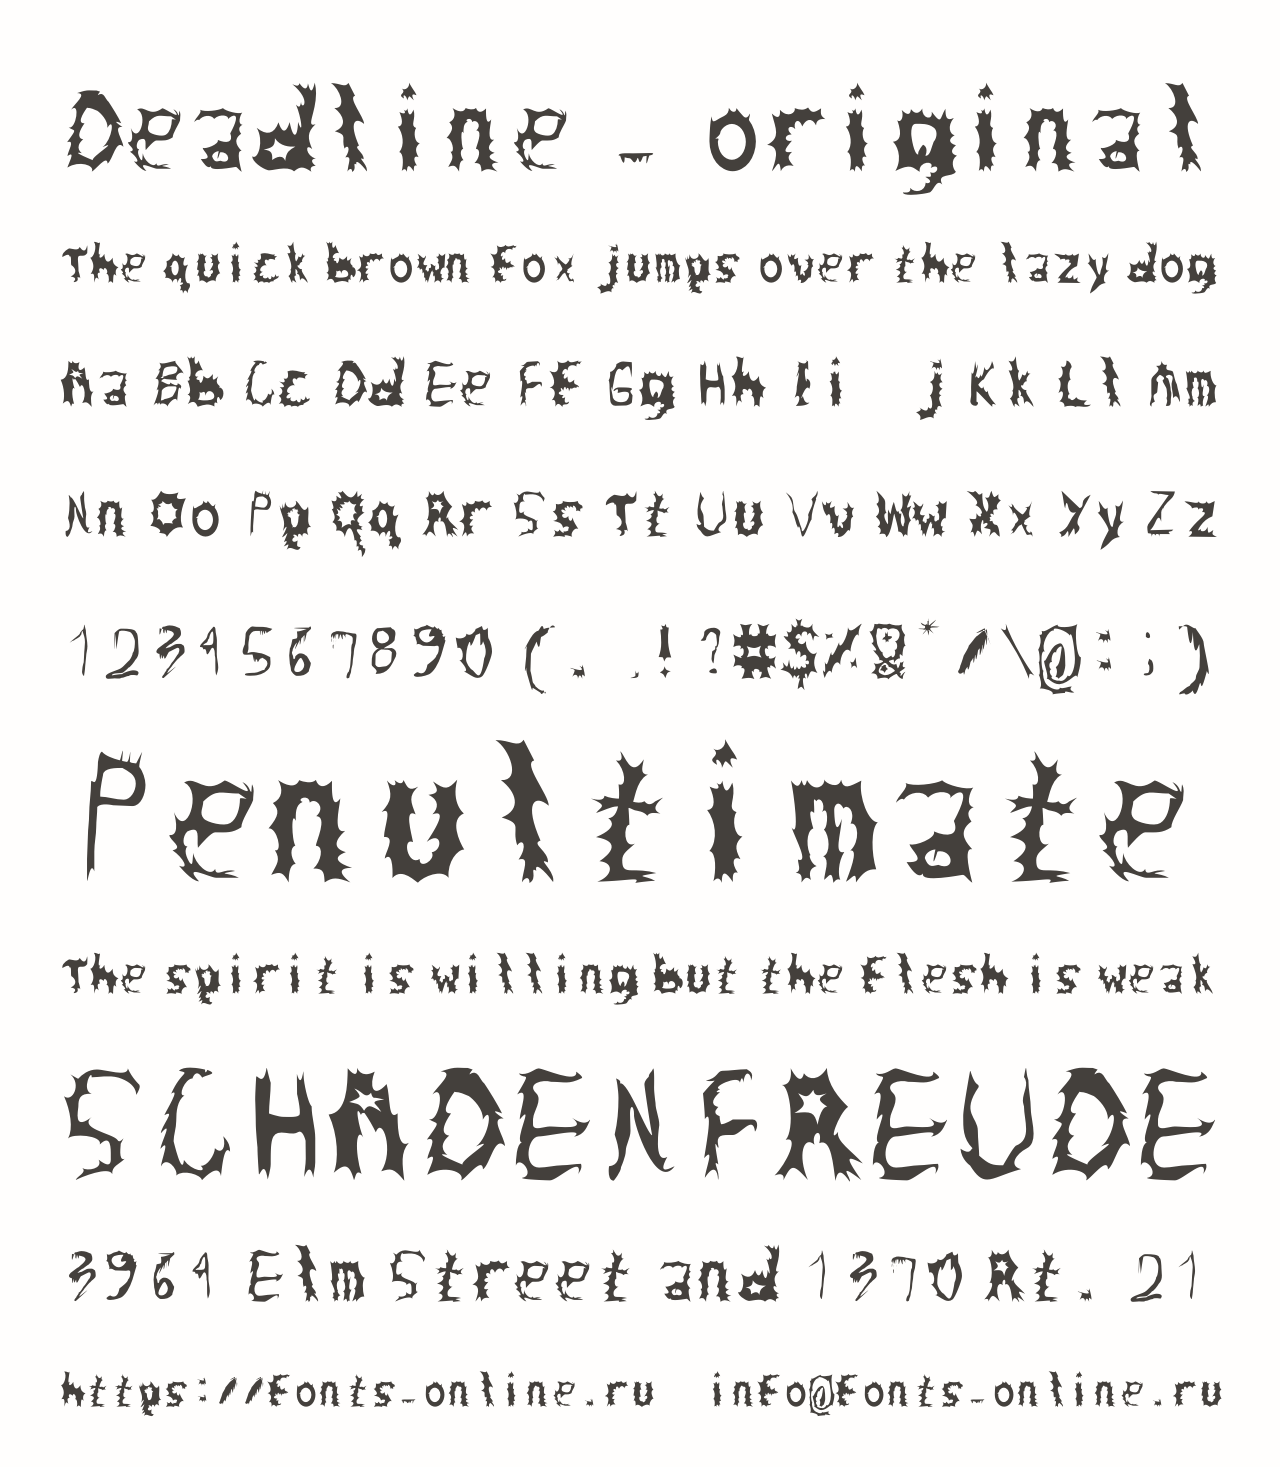 Deadline - original
The quick brown fox jumps over the lazy dog
Aa Bb Cc Dd Ee Ff Gg Hh Ii j Kk Ll Mm
Nn Oo Pp Qq Rr Ss Tt Uu Vv Ww Xx Yy Zz
1234567890 (. ,!?#$%&*/\@:;)
Penultimate
The spirit is willing but the flesh is weak
SCHADENFREUDE
3964 Elm Street and 1370 Rt. 21
https://fonts-online.ru info@fonts-online.ru